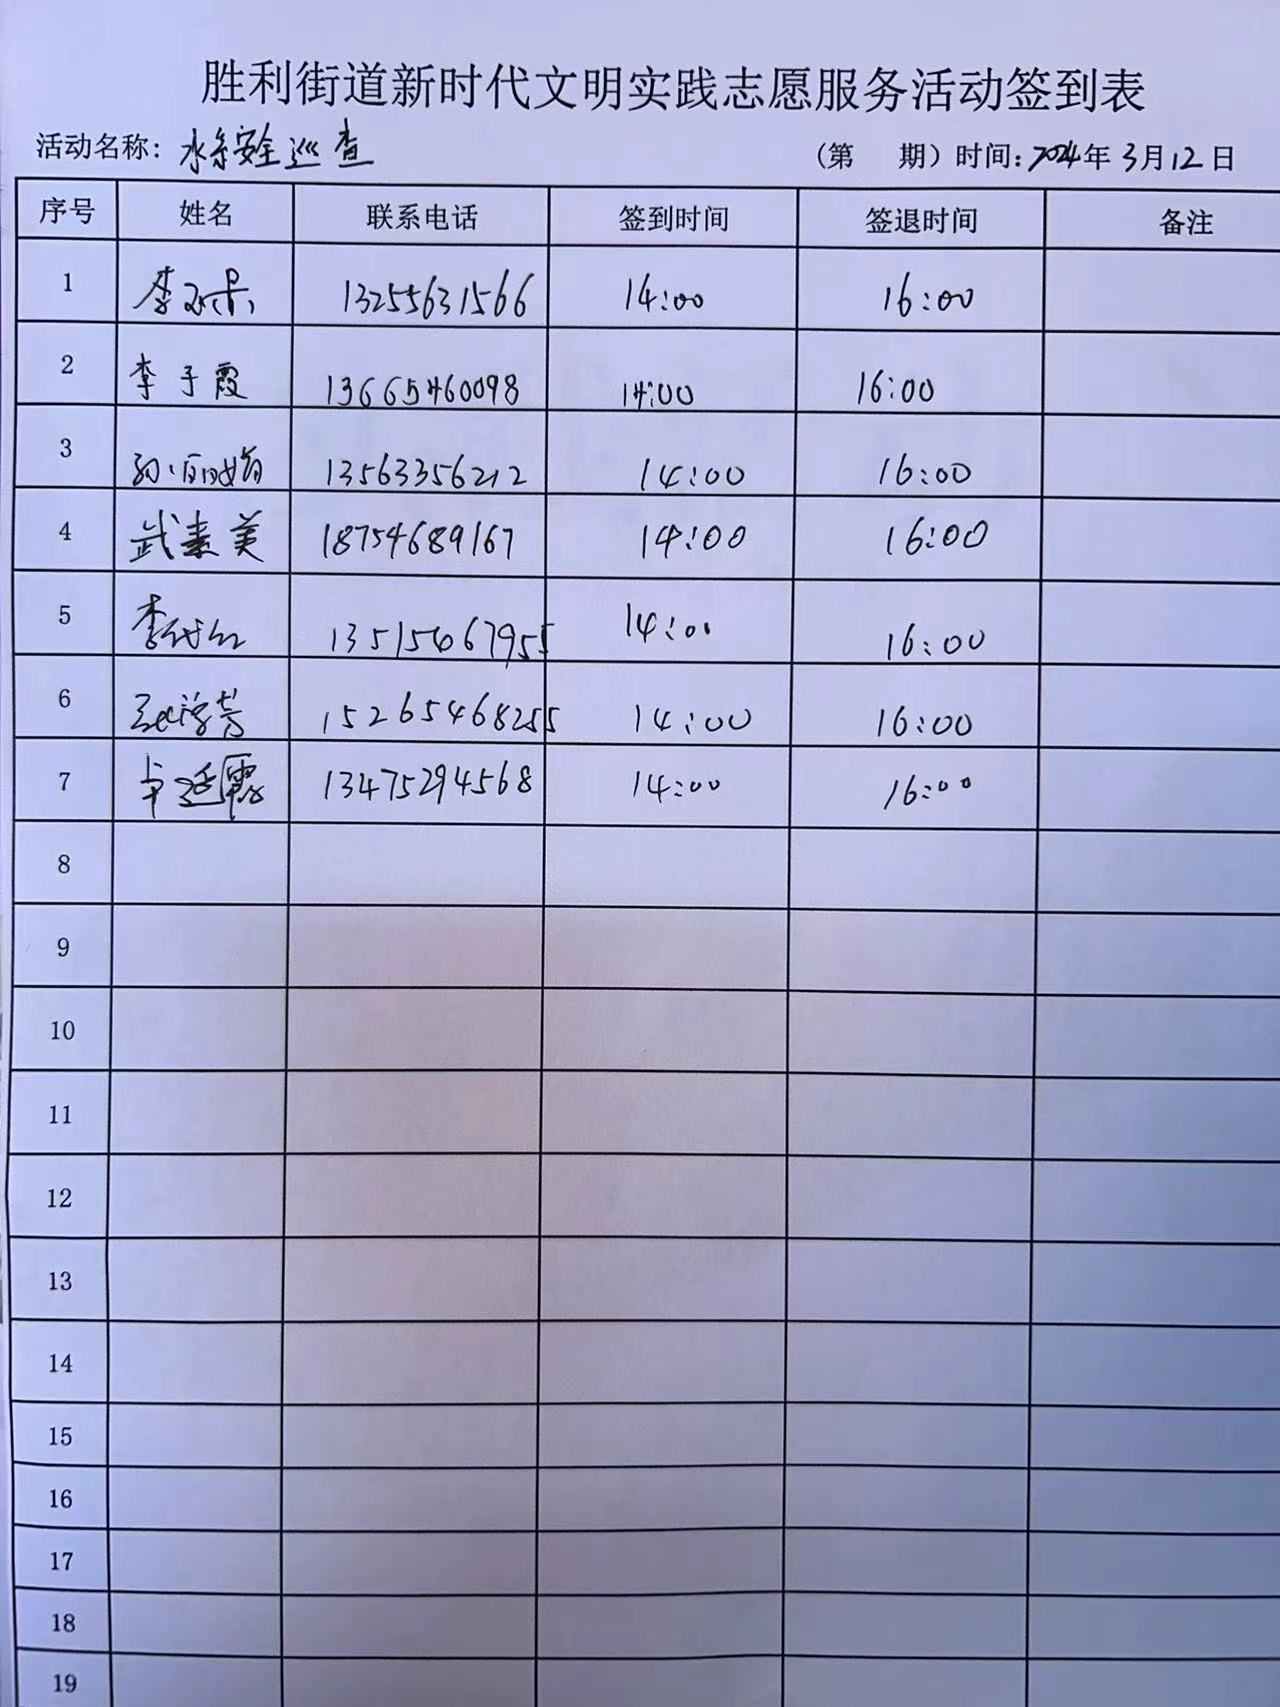 胜利街道新时代文明实践志愿服务活动签到表
活动名称：水系安全巡查 （第 期）时间：2024年3月12日
序号 姓名 联系电话 签到时间 签退时间 备注
1 李 13255631566 14:00 16:00
2 李子霞 13665460098 14:00 16:00
3 孙丽娟 13563356212 14:00 16:00
4 武素美 18754689167 14:00 16:00
5 李 13515467955 14:00 16:00
6 15265468255 14:00 16:00
7 13475294568 14:00 16:00
8
9
10
11
12
13
14
15
16
17
18
19